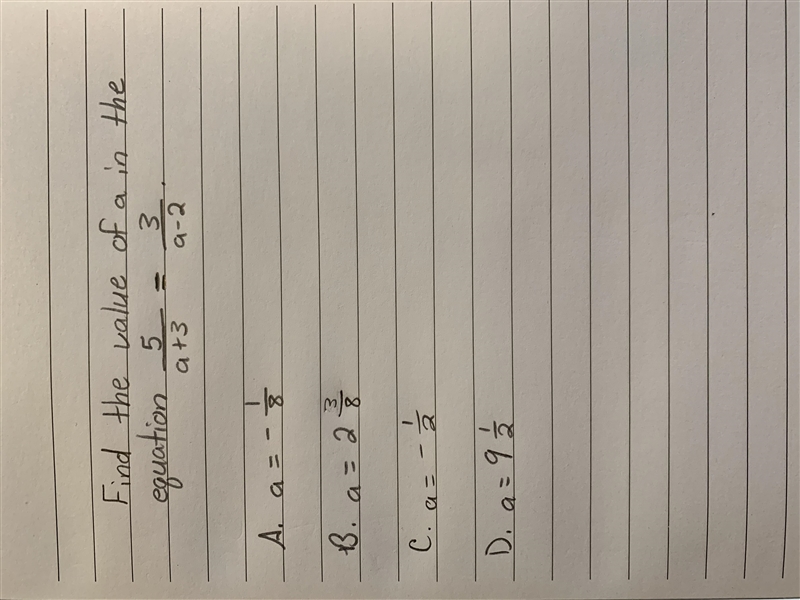 Find the value of a in the
equation 5/(a+3) = 3/(a-2).
A. a = - 1/8
B. a = 2 3/8
C. a = - 1/2
D. a = 9 1/2